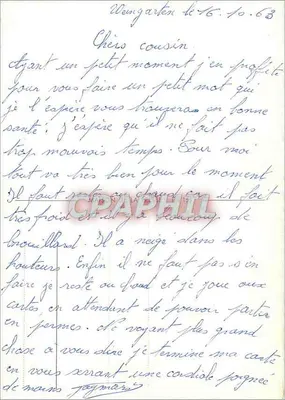 Weingarten le 16.10.63
Chers cousin
Ayant un petit moment j'en profite
pour vous faire un petit mot qui
je l'espère vous trouveras en bonne
santé; j'espère qu'il ne fait pas
trop mauvais temps. Pour moi
tout va très bien pour le moment
Il faut car il fait
très froid et il y a beaucoup de
CPAPHIL
brouillard. Il a neigé dans les
hauteurs. Enfin il ne faut pas s'en
faire je reste au chaud et je joue aux
cartes en attendant de pouvoir partir
en permes. Ne voyant plus grand
chose à vous dire je termine ma carte
en vous serrant une cordiale poignée
de mains